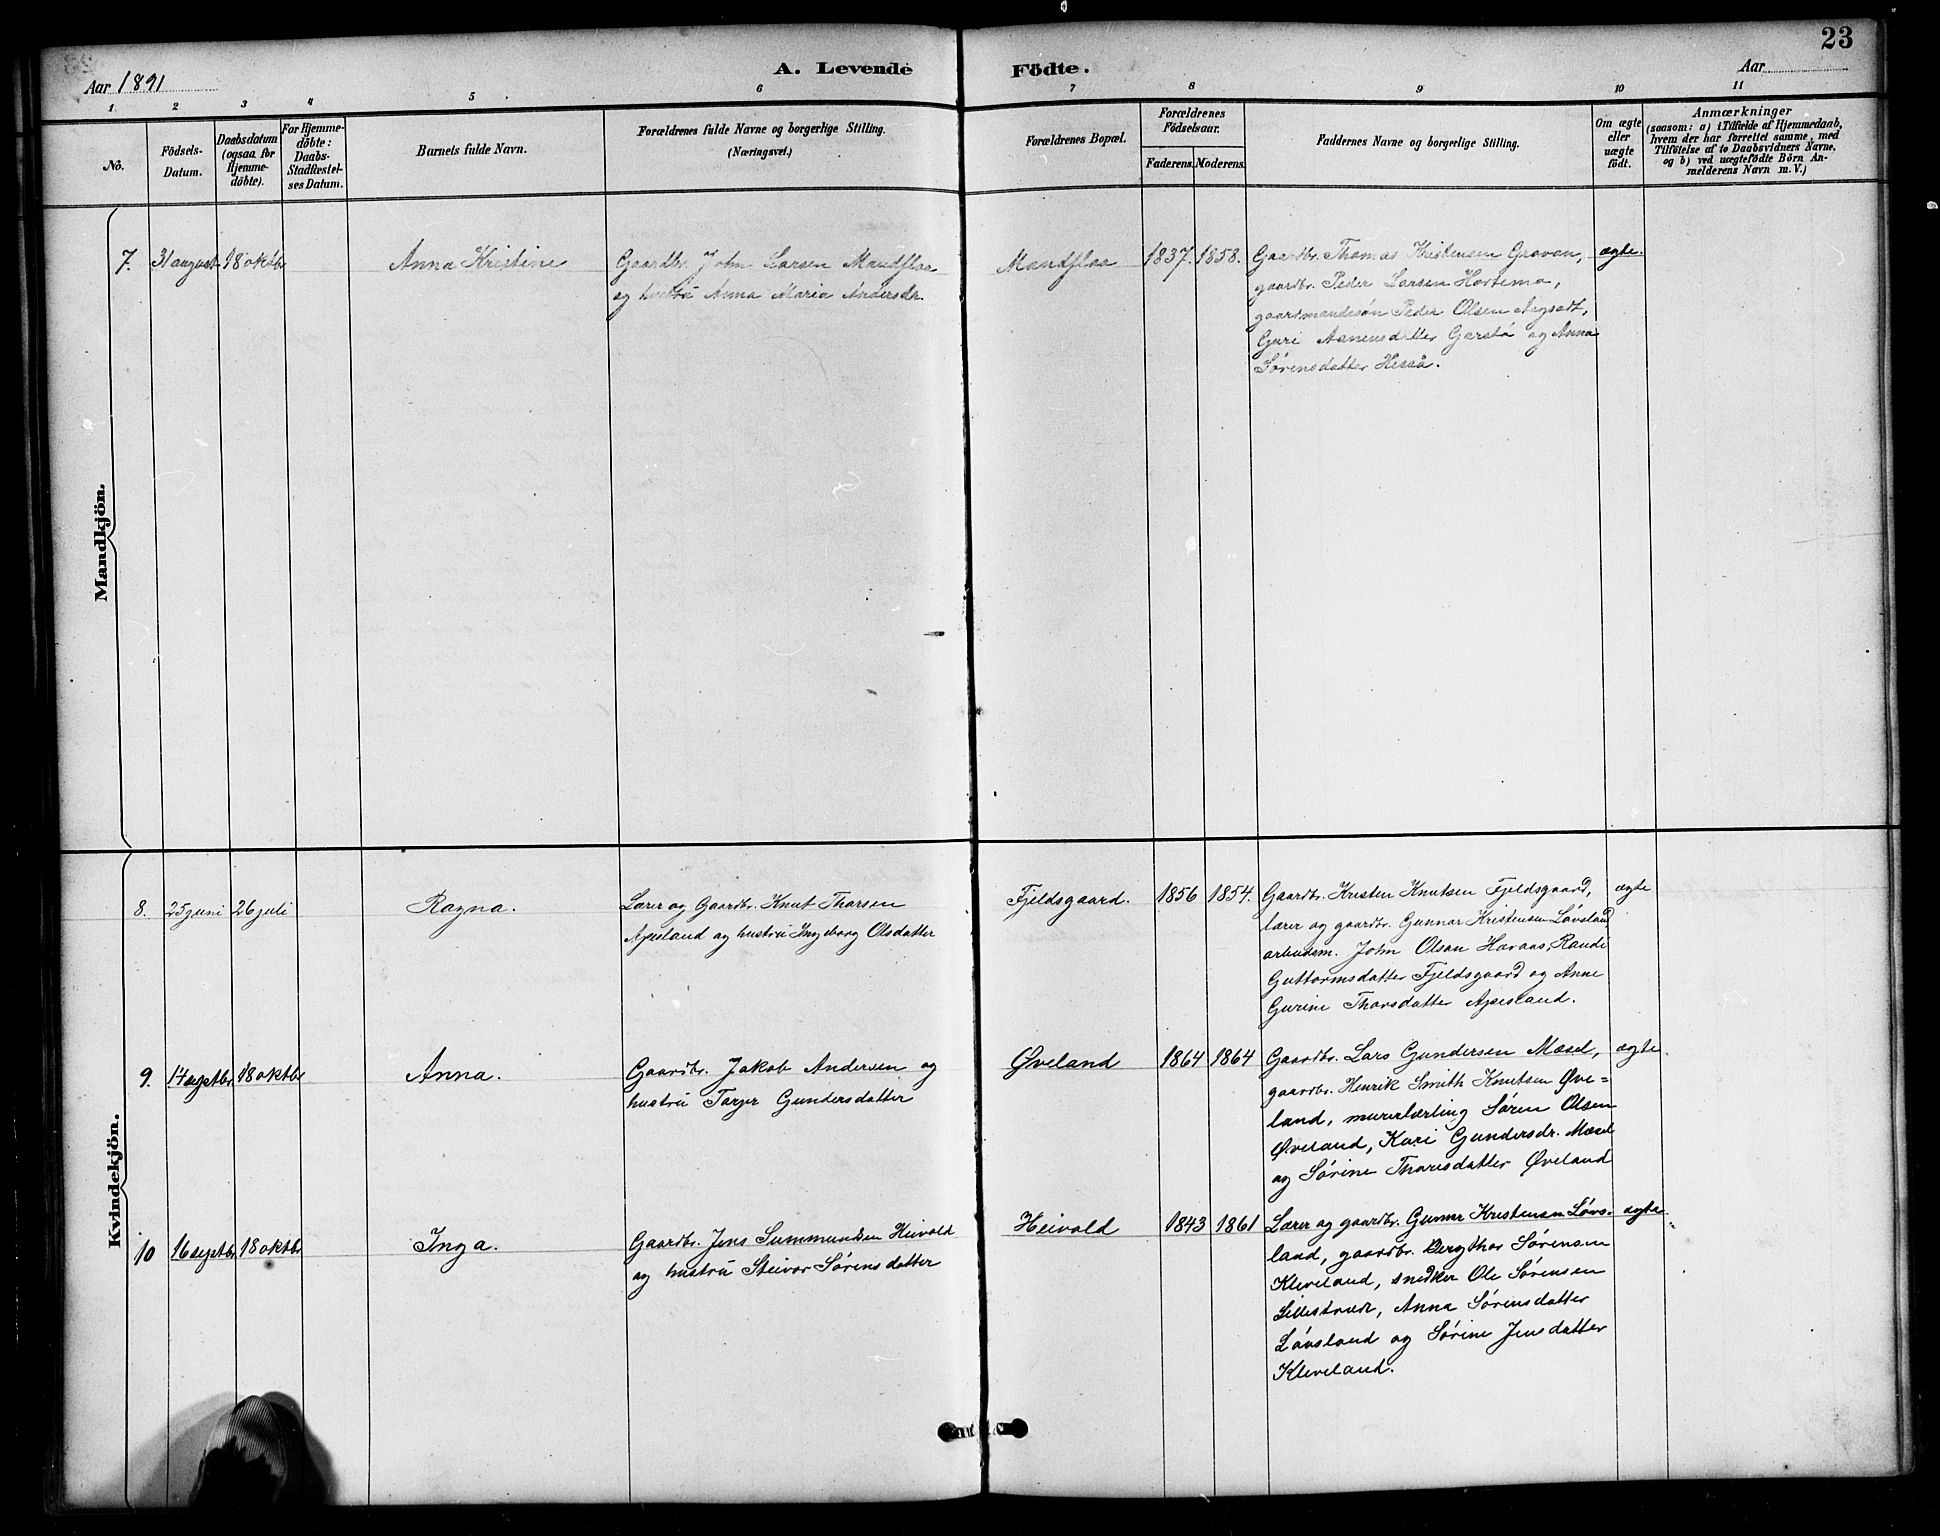 23
Aar 1891
A. Levende Födte.
Aar
1 2 3 4 5 6 7 8 9 10 11
No.
Födsels-
Datum.
Daabsdatum
(ogsaa for
Hjemme-
döbte).
For Hjemme-
döbte:
Daabs-
Stadfæstel-
ses Datum.
Barnets fulde Navn.
Forældrenes fulde Navne og borgerlige Stilling.
(Næringsvei.)
Forældrenes Bopæl.
Forældrenes
Födselsaar.
Faderens. Moderens.
Faddernes Navne og borgerlige Stilling.
Om ægte
eller
uægte
födt.
Anmærkninger
(saasom: a) i Tilfælde af Hjemmedaab,
hvem der har forrettet samme, med
Tilföielse af to Daabsvidners Navne,
og b) ved uægtefödte Börn An-
melderens Navn m. V.)
Mandkjön.
7. 31 august 18 oktbr Anna Kristine
Gaardbr. John Larsen Mandflaa
og hustru Anna Maria Andersdr.
Mandflaa 1837. 1858.
Gaardbr. Thomas Kristensen Gravan,
gaardbr. Peder Larsen Hortema,
gaardmandssøn Peder Olsen
Guri Asnensdatter Garstø og Anna
Sørensdatter Hesså.
ægte.
Kvindekjön.
8. 25 juni 26 juli Ragna.
Lærer og Gaardbr. Knut Thorsen
Apesland og hustru Ingeborg Olsdatter
Fjeldsgaard. 1856 1854.
Gaardbr. Kristen Knutsen Fjeldsgaard,
lærer og gaardbr. Gunnar Kristensen Løvsland,
arbeidsm. John Olsen Haraas, Randi
Guttormsdatter Fjeldsgaard og Anne
Gurine Thorsdatter Apesland.
ægte
9. 14 septbr 18 oktbr Anna.
Gaardbr. Jakob Andersen og
hustru Torjer Gundersdatter
Øveland 1864 1864
Gaardbr. Lars Gundersen Mæsel,
gaardbr. Henrik Smith Knutsen Øve=
land, murerlærling Søren Olsen
Øveland, Kari Gundersdr. Mæsel
og Sørine Thoresdatter Øveland
ægte.
10 16 septbr 18 oktbr Inga.
Gaardbr. Jens Summundsen Heivold
og hustru Steivor Sørensdatter
Heivold 1843 1861
Lærer og gaardbr. Gunnar Kristensen Løvs-
land, gaardbr. Bergthor Sørensen
Kleveland, snedker Ole Sørensen
Lillestrædt, Anna Sørensdatter
Løvsland og Sørine Jensdatter
Kleveland.
ægte